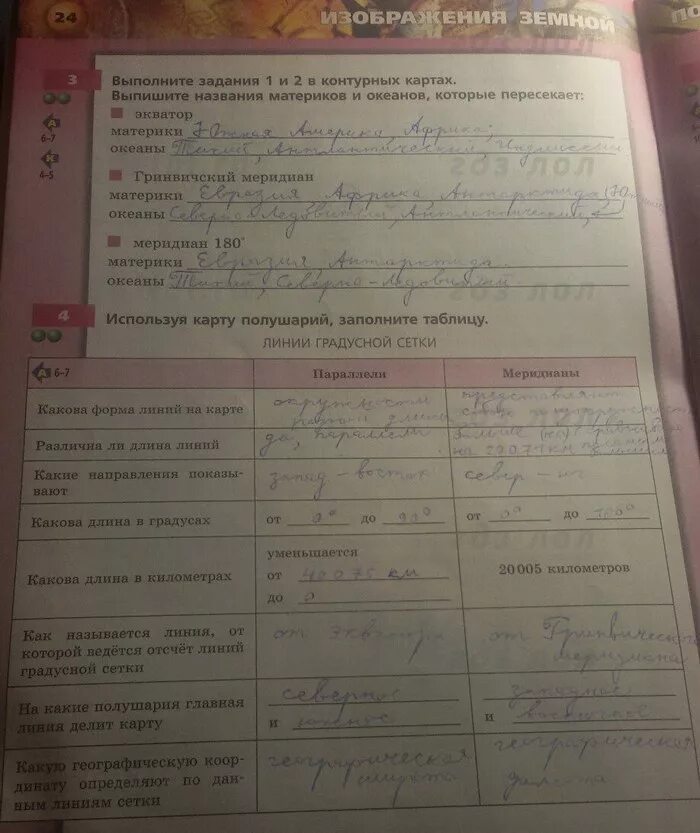 24
ИЗОБРАЖЕНИЯ ЗЕМНОЙ
ПО
3
Выполните задания 1 и 2 в контурных картах.
Выпишите названия материков и океанов, которые пересекает:
А
6–7
К
4–5
экватор
материки Южная Америка, Африка;
океаны Тихий, Атлантический, Индийский.
Гринвичский меридиан
материки Евразия, Африка, Антарктида
океаны Северно-Ледовитый, Атлантический,
меридиан 180°
материки Евразия, Антарктида.
океаны Тихий, Северно-Ледовитый.
4
Используя карту полушарий, заполните таблицу.
ЛИНИИ ГРАДУСНОЙ СЕТКИ
А 6–7
Параллели
Меридианы
Какова форма линий на карте
окружности
разной длины
представляют
собой полуокружност
Различна ли длина линий
да, параллели
Какие направления показы-
вают
запад - восток
север - юг
Какова длина в градусах
от 0° до 90°
от 0° до 180°
Какова длина в километрах
уменьшается
от 40075 км
до 0
20 005 километров
Как называется линия, от
которой ведётся отсчёт линий
градусной сетки
от экватора
от Гринвического
меридиана
На какие полушария главная
линия делит карту
северное
и южное
западное
и восточное
Какую географическую коор-
динату определяют по дан-
ным линиям сетки
географическая
широта
географическая
долгота